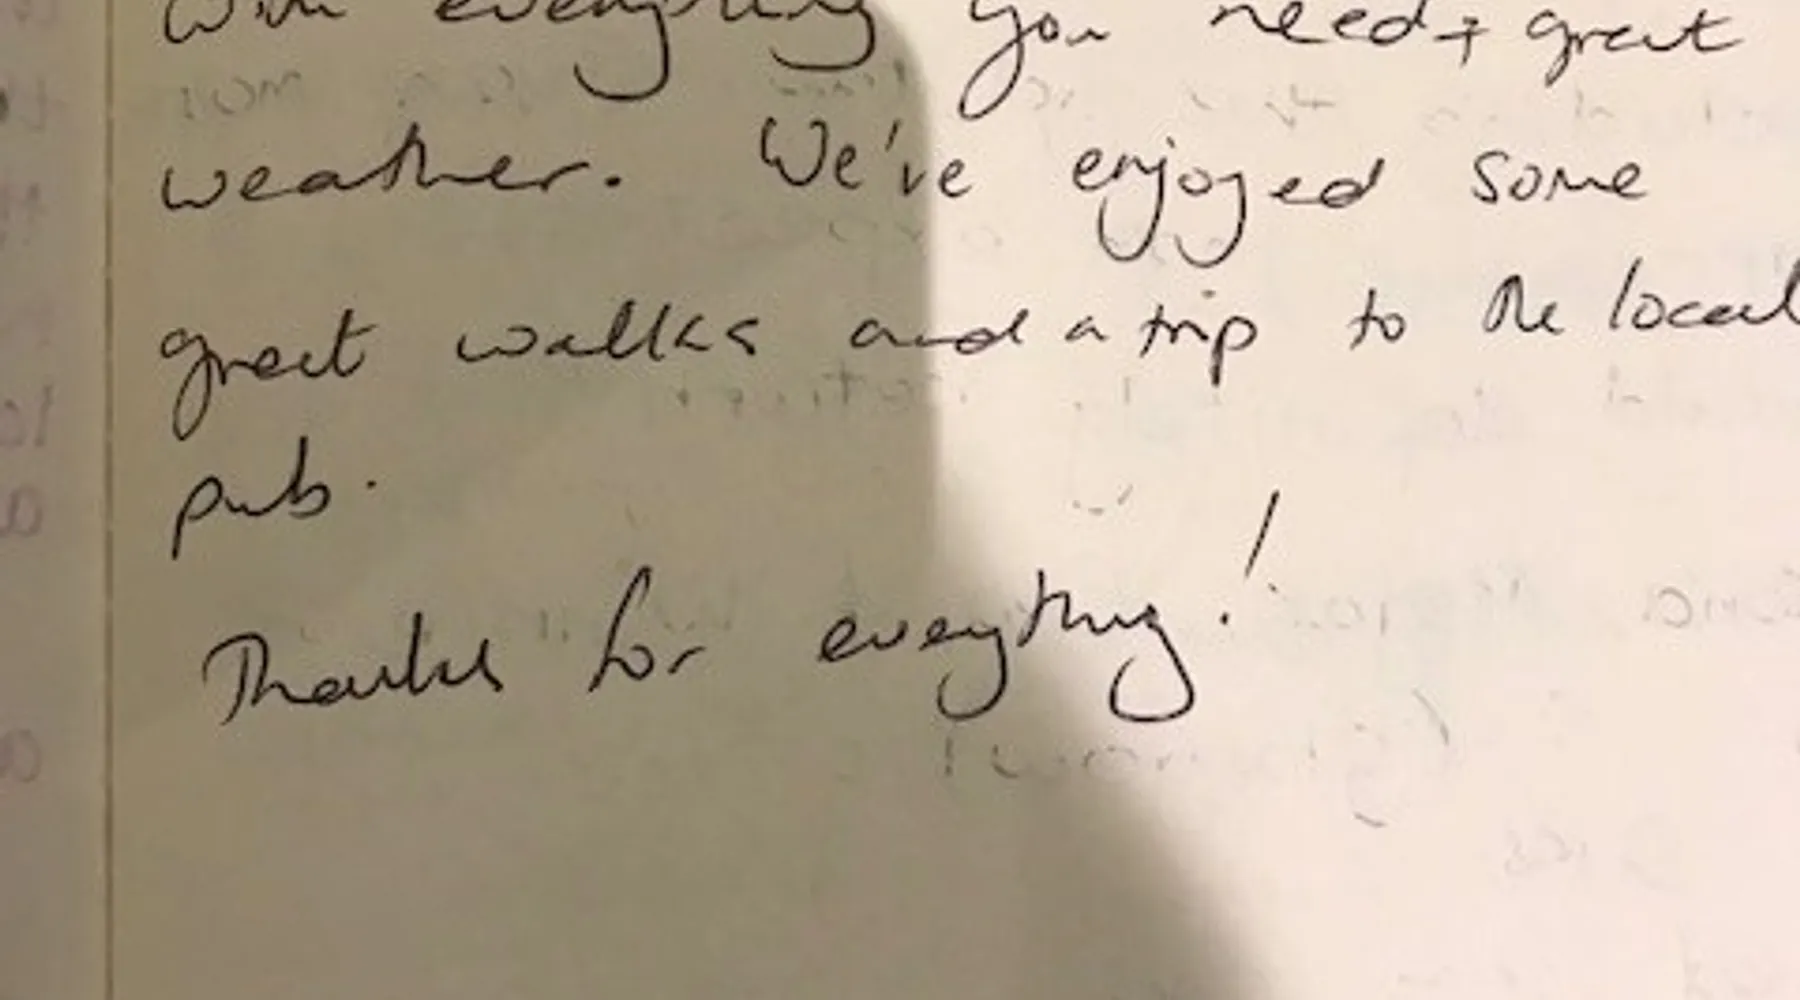 with everything you need + great
weather. We've enjoyed some
great walks and a trip to the local
pub.
Thanks for everything!